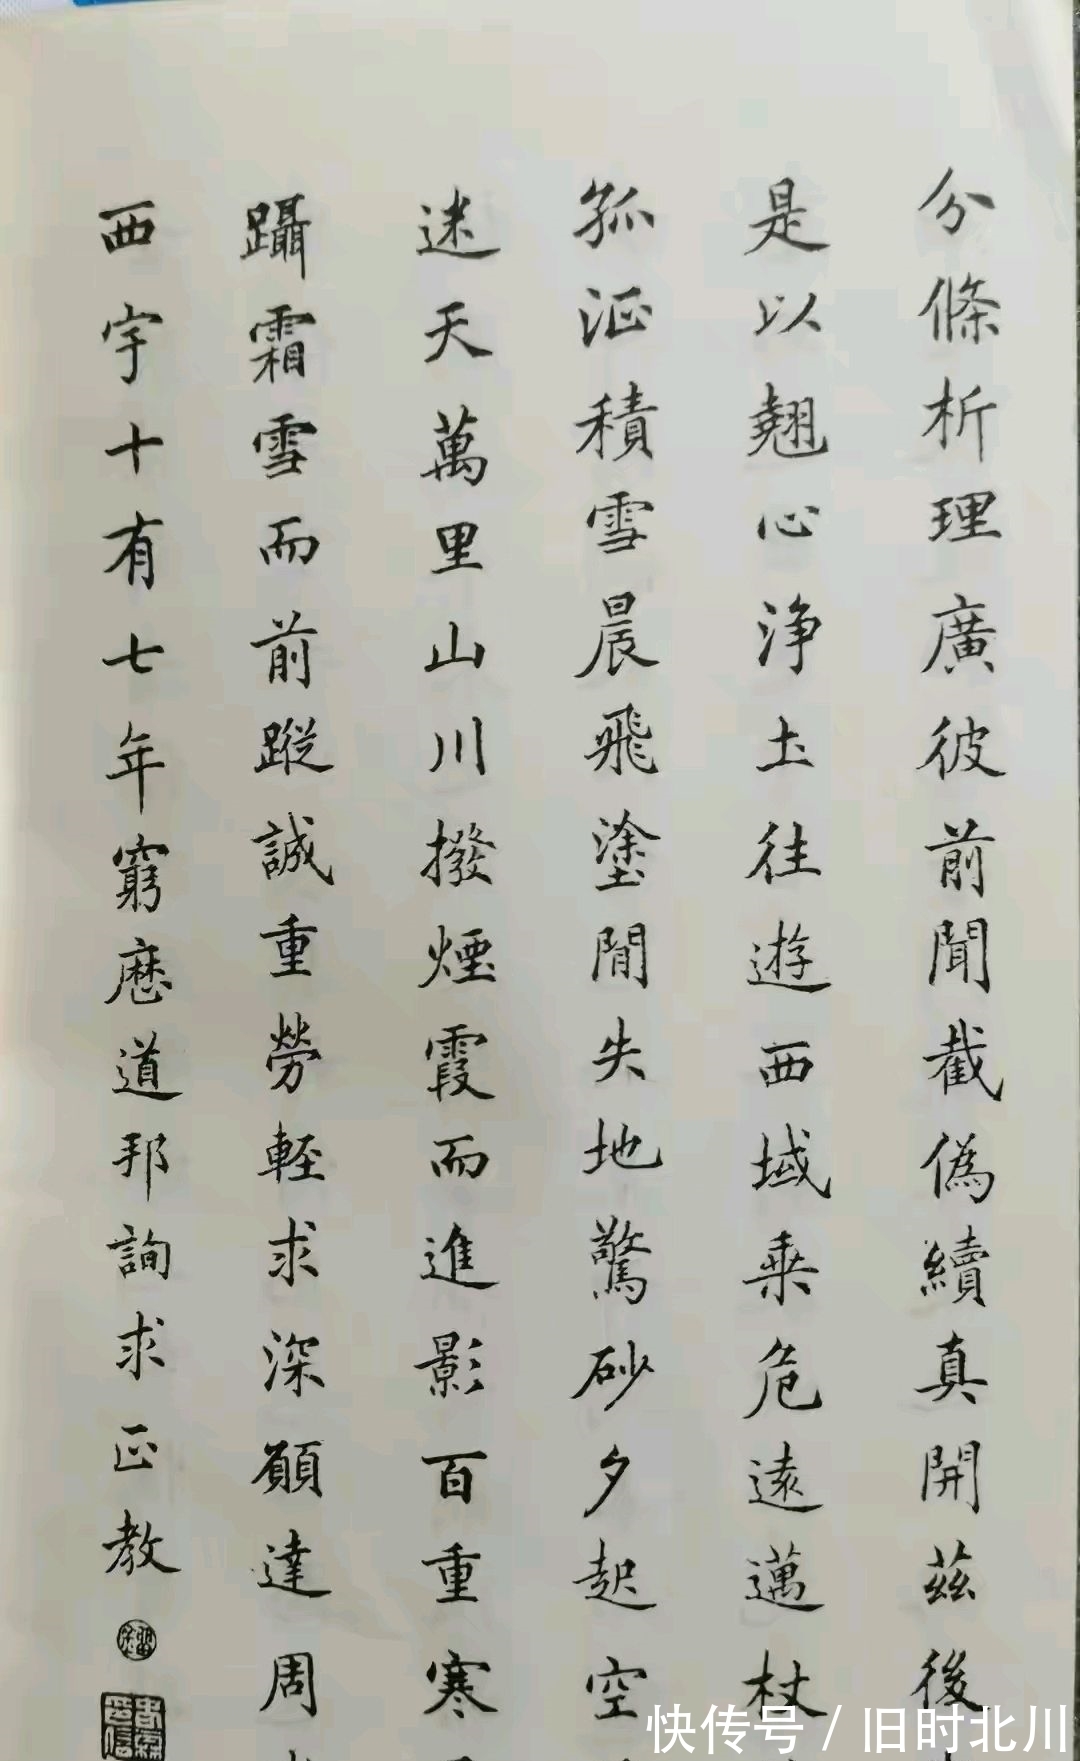 分條析理廣彼前聞截偽續真開茲後
是以翹心淨土往遊西域乗危遠邁杖
孤征積雪晨飛塗閒失地驚砂夕起空
迷天萬里山川撥煙霞而進影百重寒
躡霜雪而前蹤誠重勞輕求深願達周
西宇十有七年窮歷道邦詢求正教
快传号 / 旧时北川